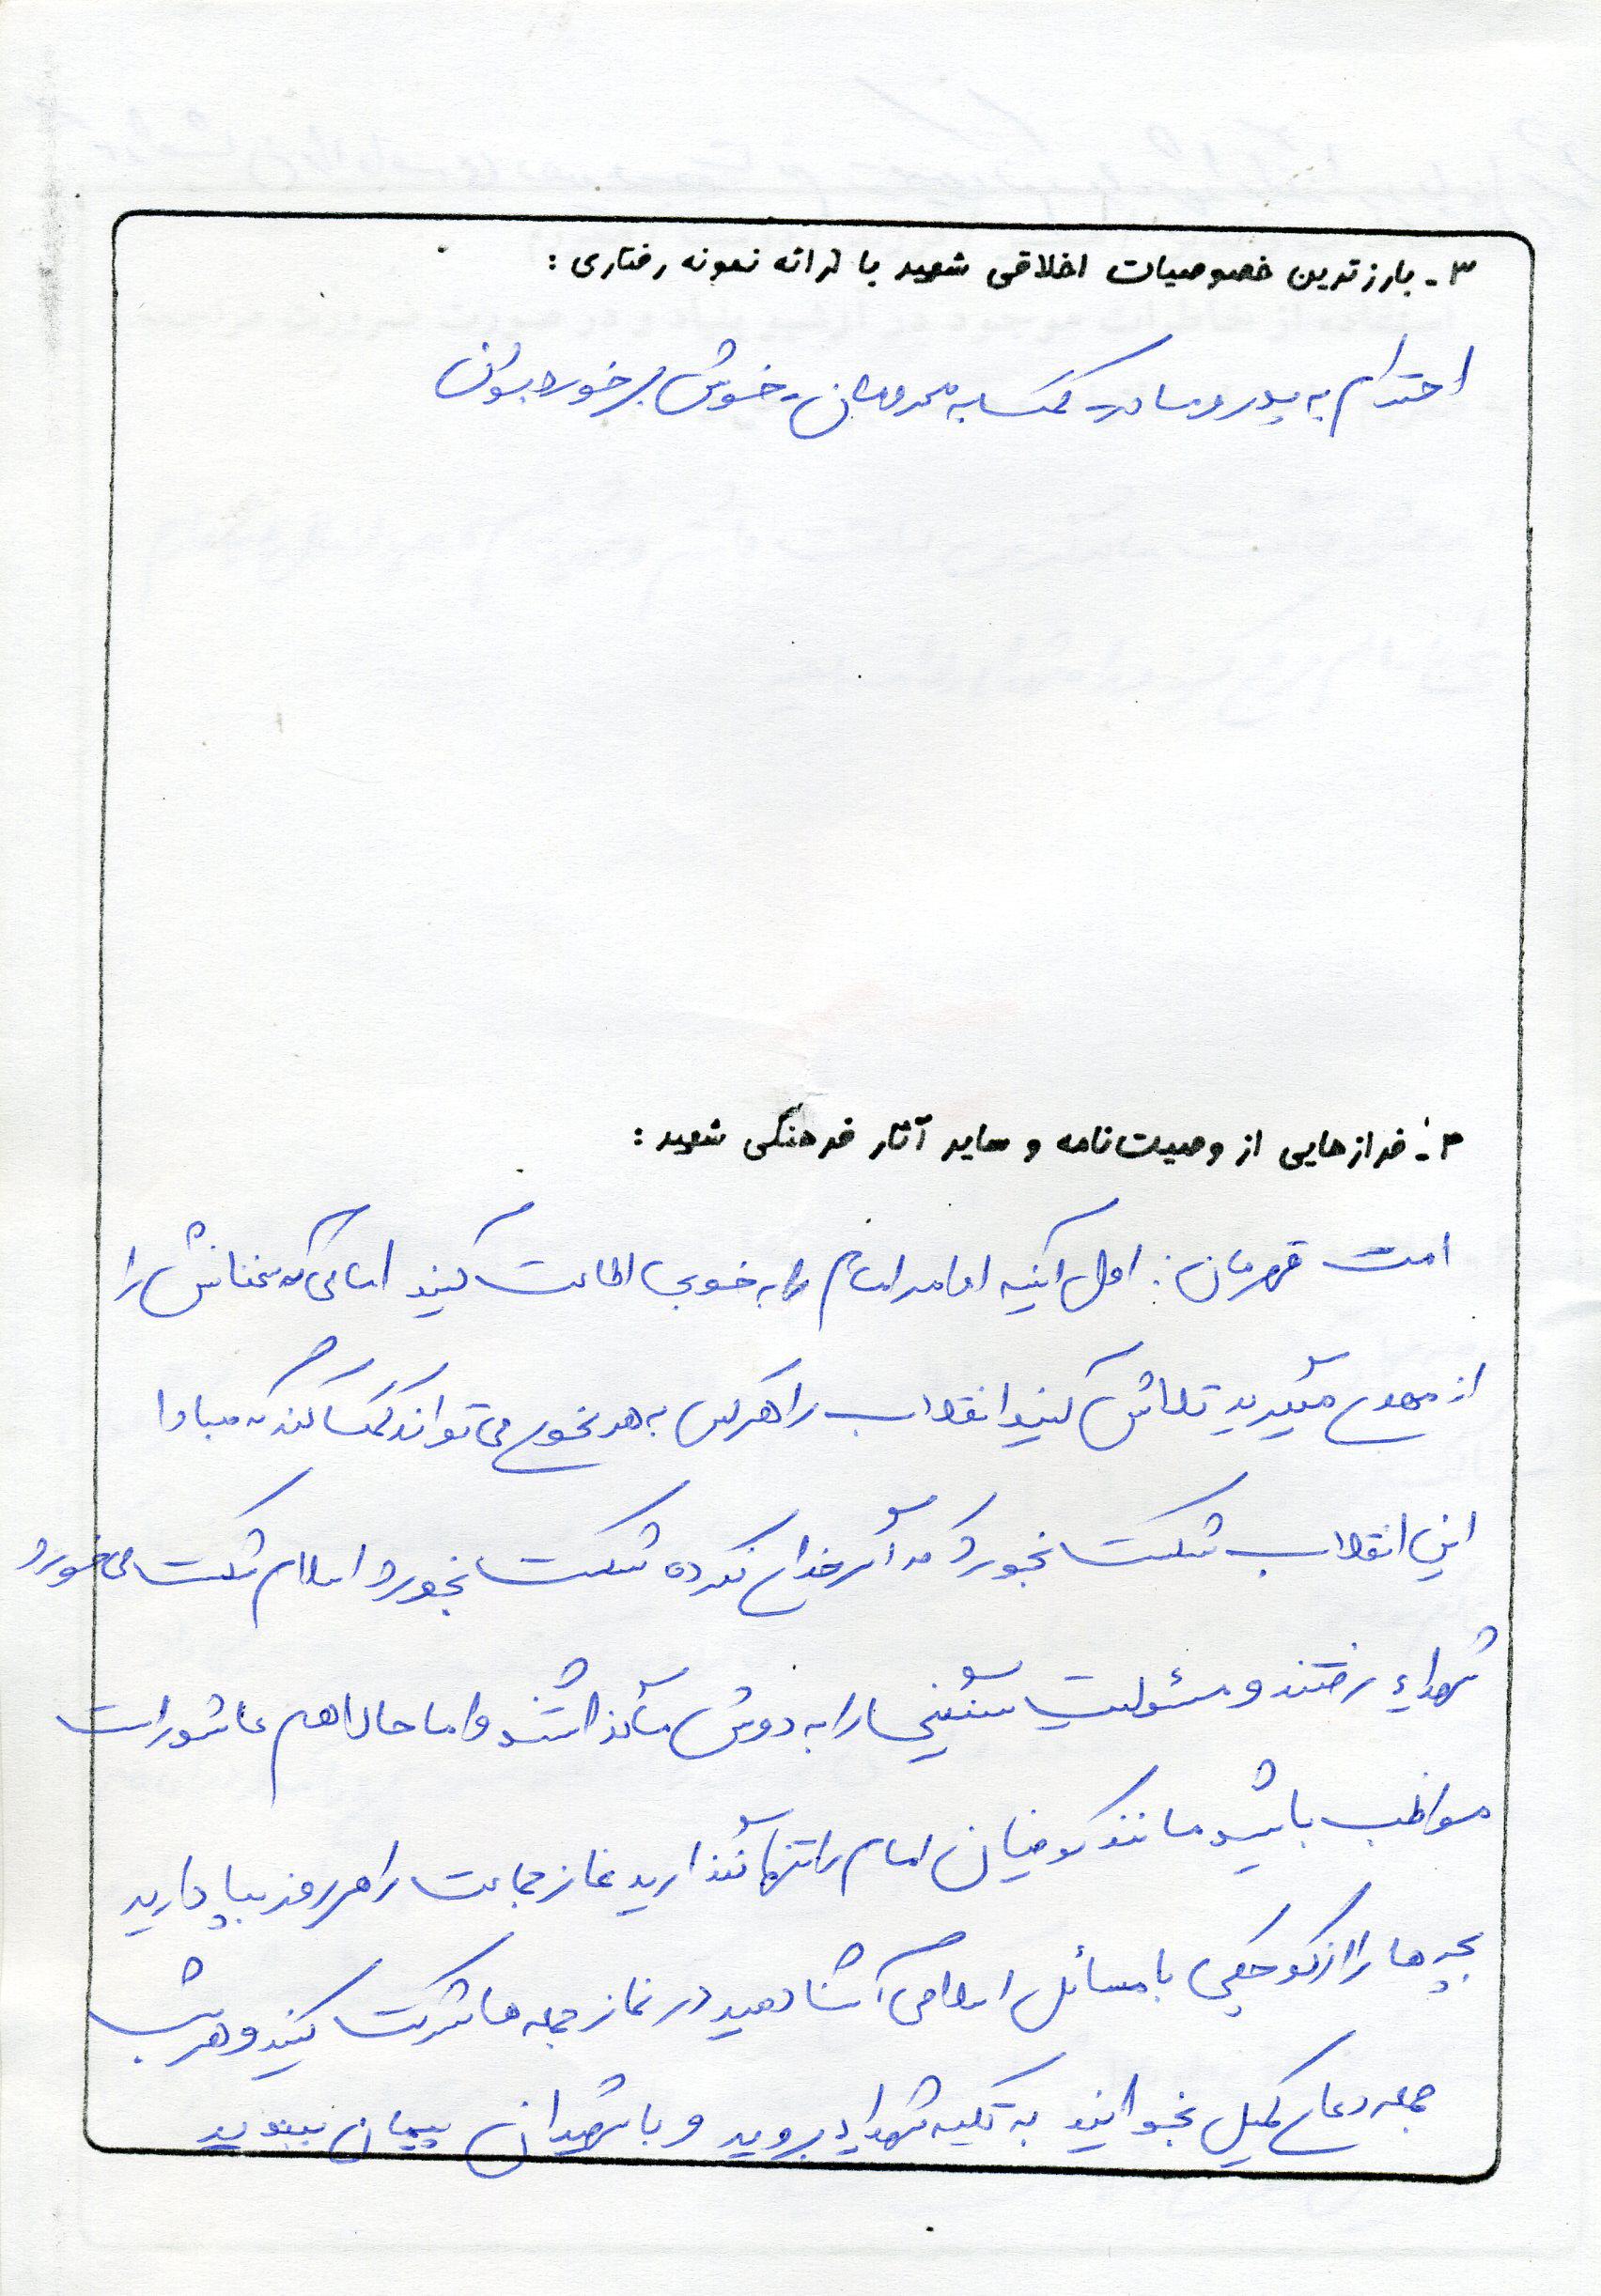 ۳- بارزترین خصوصیات اخلاقی شهید با ارائه نمونه رفتاری :
احترام به پدر و مادر - کمک به محرومان - خوش برخورد بودن
۴- فرازهایی از وصیت‌نامه و سایر آثار فرهنگی شهید :
امت قهرمان : اول اینکه اوامر امام را به خوبی اطاعت کنید امامی که سخنانش را
از مهدی میگیرید تلاش کنید انقلاب را هر کس به هر نحوی می تواند کمک کند که مبادا
این انقلاب شکست بخورد که اگر خدای نکرده شکست بخورد اسلام شکست می خورد
شهداء رفتند و مسئولیت سنگینی را به دوش ما گذاشتند و اما حالا هم عاشوراست
مواظب باشید مانند کوفیان امام را تنها نگذارید نماز جماعت را هر روز بپا دارید
بچه ها را از کوچکی با مسائل اسلامی آشنا دهید در نماز جمعه ها شرکت کنید و هر شب
جمعه دعای کمیل بخوانید به تکیه شهداء بروید و با شهیدان پیمان ببندید